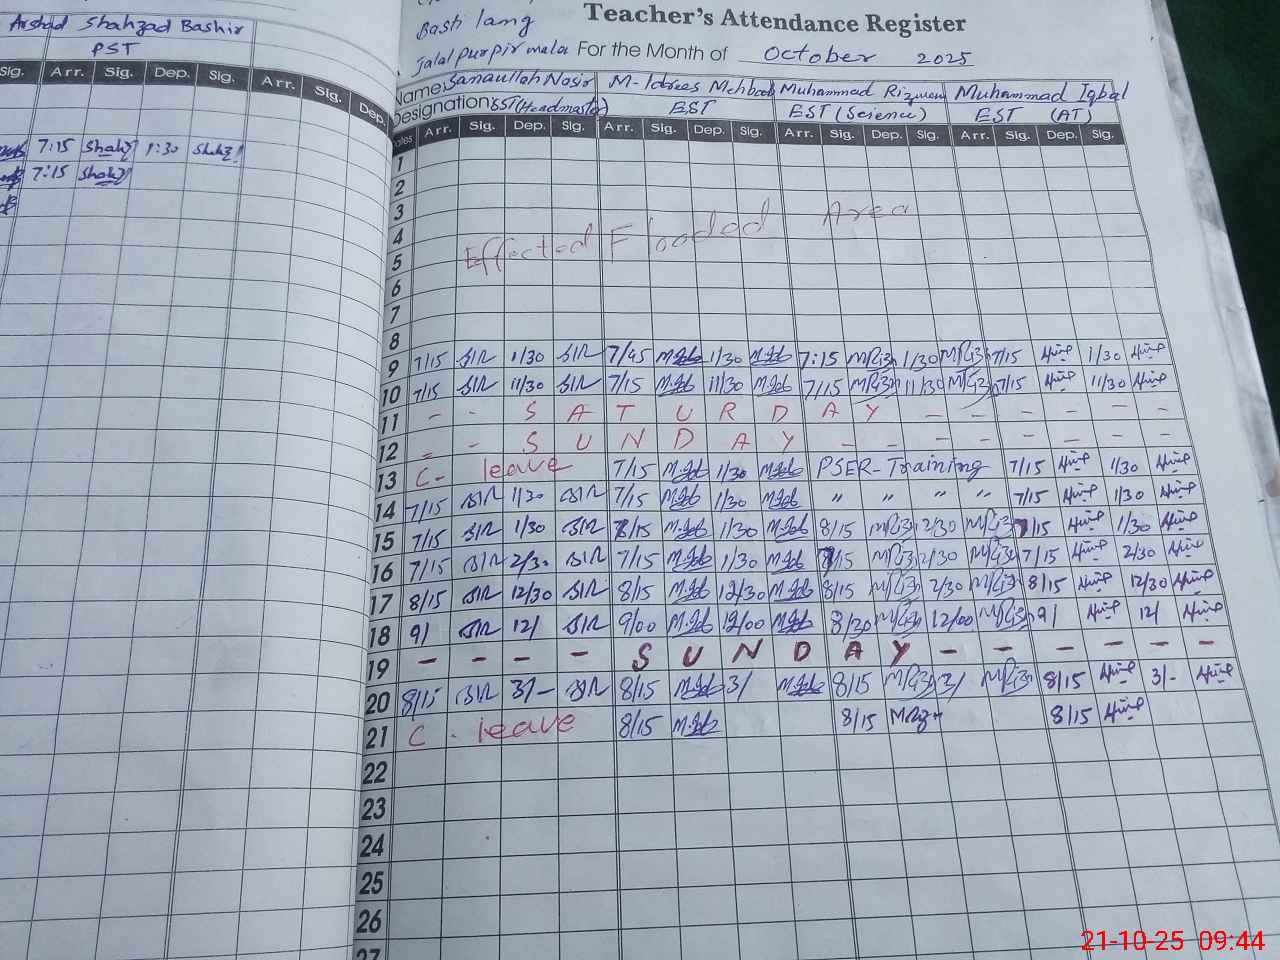 Arshad Shahzad Bashir
PST
Sig. Arr. Sig. Dep. Sig. Arr. Sig. Dep.
7:15 Shahz 1:30 Shahz
7:15 Shahz
Basti lang
Jalalpurpirwala
Teacher's Attendance Register
For the Month of October 2025
Name Sanaullah Nasir M-Idrees Mehboob Muhammad Rizwan Muhammad Iqbal
Designation SST (Headmaster) EST EST (Science) EST (AT)
Dates Arr. Sig. Dep. Sig. Arr. Sig. Dep. Sig. Arr. Sig. Dep. Sig. Arr. Sig. Dep. Sig.
1
2
3
4
5
Effected Flooded Area
6
7
8
9 7/15 SIR 1/30 SIR 7/45 1/30 7:15 MRiz 1/30 MRiz 7/15 1/30
10 7/15 SIR 11/30 SIR 7/15 11/30 7/15 MRiz 11/30 MRiz 7/15 11/30
11 - - S A T U R D A Y - - - - - -
12 - - S U N D A Y - - - - - - -
13 C- leave 7/15 1/30 PSER-Training 7/15 1/30
14 7/15 SIR 1/30 SIR 7/15 1/30 " " " " 7/15 1/30
15 7/15 SIR 1/30 SIR 8/15 1/30 8/15 MRiz 2/30 MRiz 7/15 1/30
16 7/15 SIR 2/30 SIR 7/15 1/30 8/15 MRiz 2/30 MRiz 7/15 2/30
17 8/15 SIR 12/30 SIR 8/15 12/30 8/15 MRiz 2/30 MRiz 8/15 12/30
18 9/ SIR 12/ SIR 9/00 12/00 8/30 MRiz 12/00 MRiz 9/ 12/
19 - - - - S U N D A Y - - - - - -
20 8/15 SIR 3/- SIR 8/15 3/ 8/15 MRiz 3/ MRiz 8/15 3/-
21 C - leave 8/15 8/15 MRiz 8/15
22
23
24
25
26
27
21-10-25 09:44